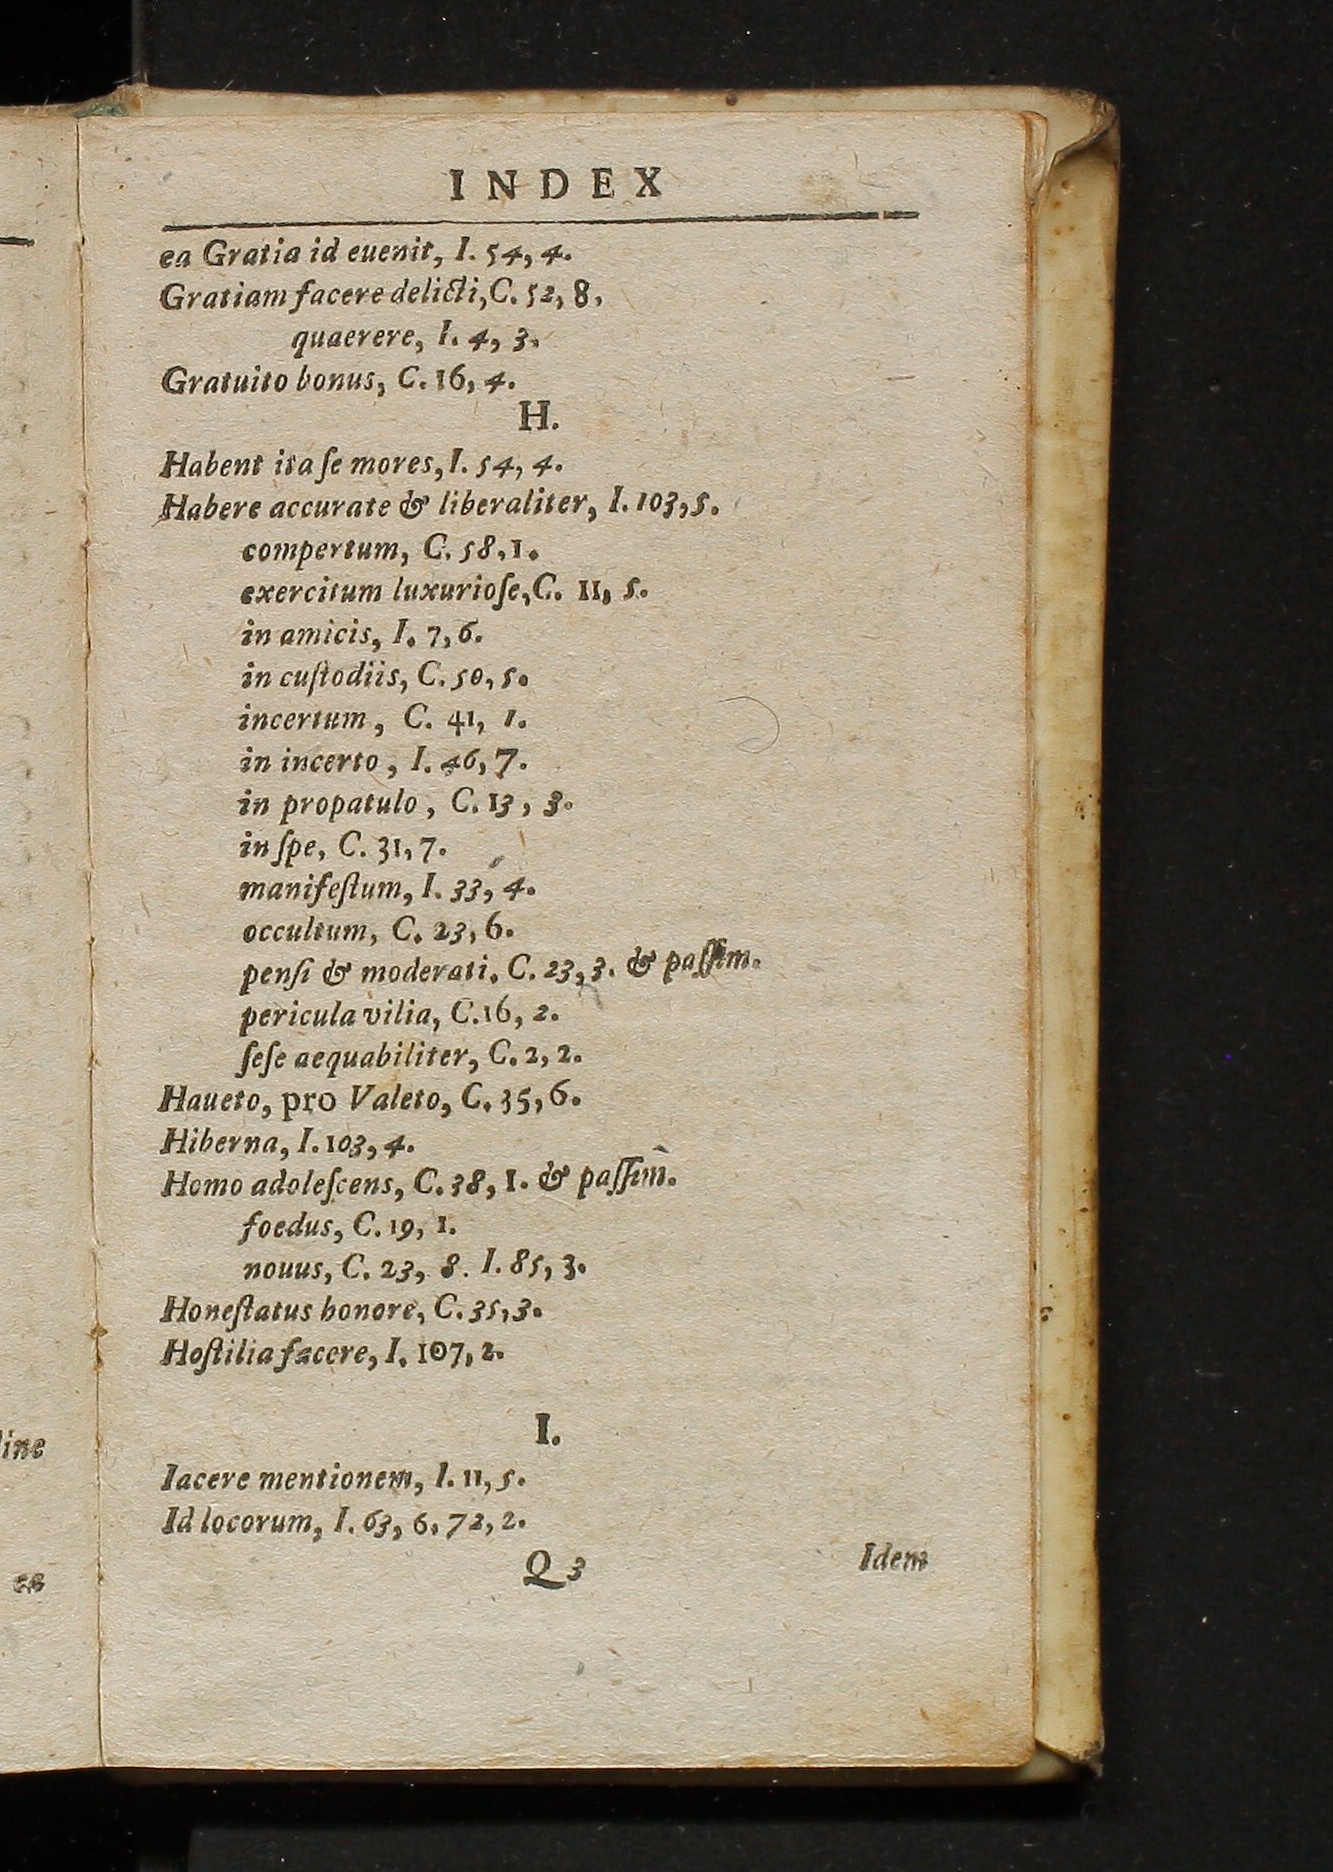 INDEX
ea Gratia id euenit, I. 54, 4.
Gratiam facere delicti, C. 52, 8.
quaerere, I. 4, 3.
Gratuito bonus, C. 16, 4.
H.
Habent ita ſe mores, I. 54, 4.
Habere accurate & liberaliter, I. 103, 5.
compertum, C. 58, 1.
exercitum luxurioſe, C. 11, 5.
in amicis, I. 7, 6.
in cuſtodiis, C. 50, 5.
incertum, C. 41, 1.
in incerto, I. 46, 7.
in propatulo, C. 13, 3.
in ſpe, C. 31, 7.
manifeſtum, I. 33, 4.
occultum, C. 23, 6.
penſi & moderati. C. 23, 3. & paſſim.
pericula vilia, C. 16, 2.
ſeſe aequabiliter, C. 2, 2.
Haueto, pro Valeto, C. 35, 6.
Hiberna, I. 103, 4.
Homo adoleſcens, C. 38, 1. & paſſim.
foedus, C. 19, 1.
nouus, C. 23, 8. I. 85, 3.
Honeſtatus honore, C. 35, 3.
Hoſtilia facere, I. 107, 2.
I.
Iacere mentionem, I. 11, 5.
Id locorum, I. 63, 6. 72, 2.
Q 3 Idem